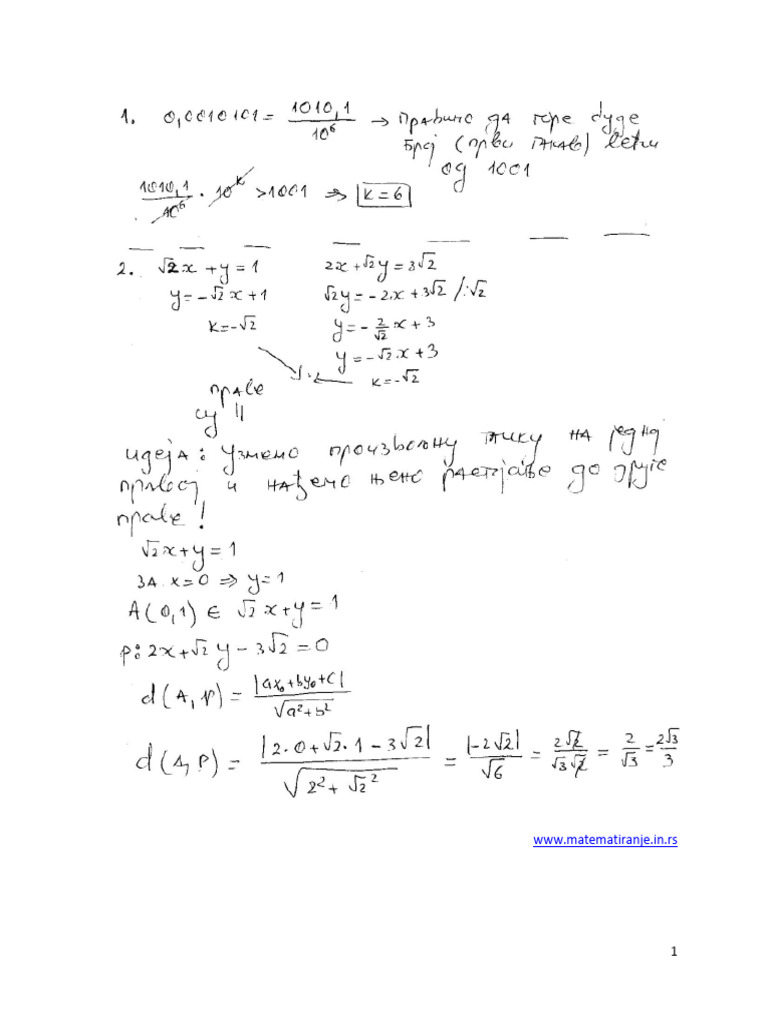 1. 0,0010101 = 1010,1/10⁶ → Правимо да горе буде
број (први такав) већи
од 1001
1010,1/10⁶ · 10ᵏ > 1001 ⇒ k = 6
2. √2x + y = 1 2x + √2y = 3√2
y = -√2x + 1 √2y = -2x + 3√2 /:√2
k = -√2 y = -2/√2 x + 3
y = -√2·x + 3
k = -√2
праве
су ||
идеја: узмемо произвољну тачку на једној
правој и нађемо њено растојање до друге
праве!
√2x + y = 1
за x = 0 ⇒ y = 1
A(0,1) ∈ √2x + y = 1
p: 2x + √2y - 3√2 = 0
d(A, p) = |ax₀ + by₀ + c|/√(a² + b²)
d(A, p) = |2·0 + √2·1 - 3√2|/√(2² + √2²) = |-2√2|/√6 = 2√2/√3√2 = 2/√3 = 2√3/3
www.matematiranje.in.rs
1